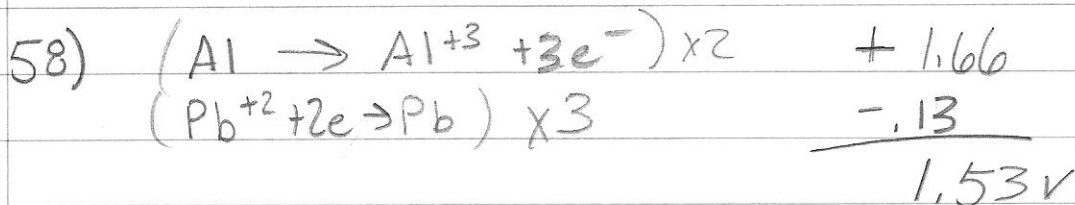 58) (Al → Al+3 +3e-) x2 + 1.66
(Pb+2 +2e → Pb) x3 -.13
1.53V